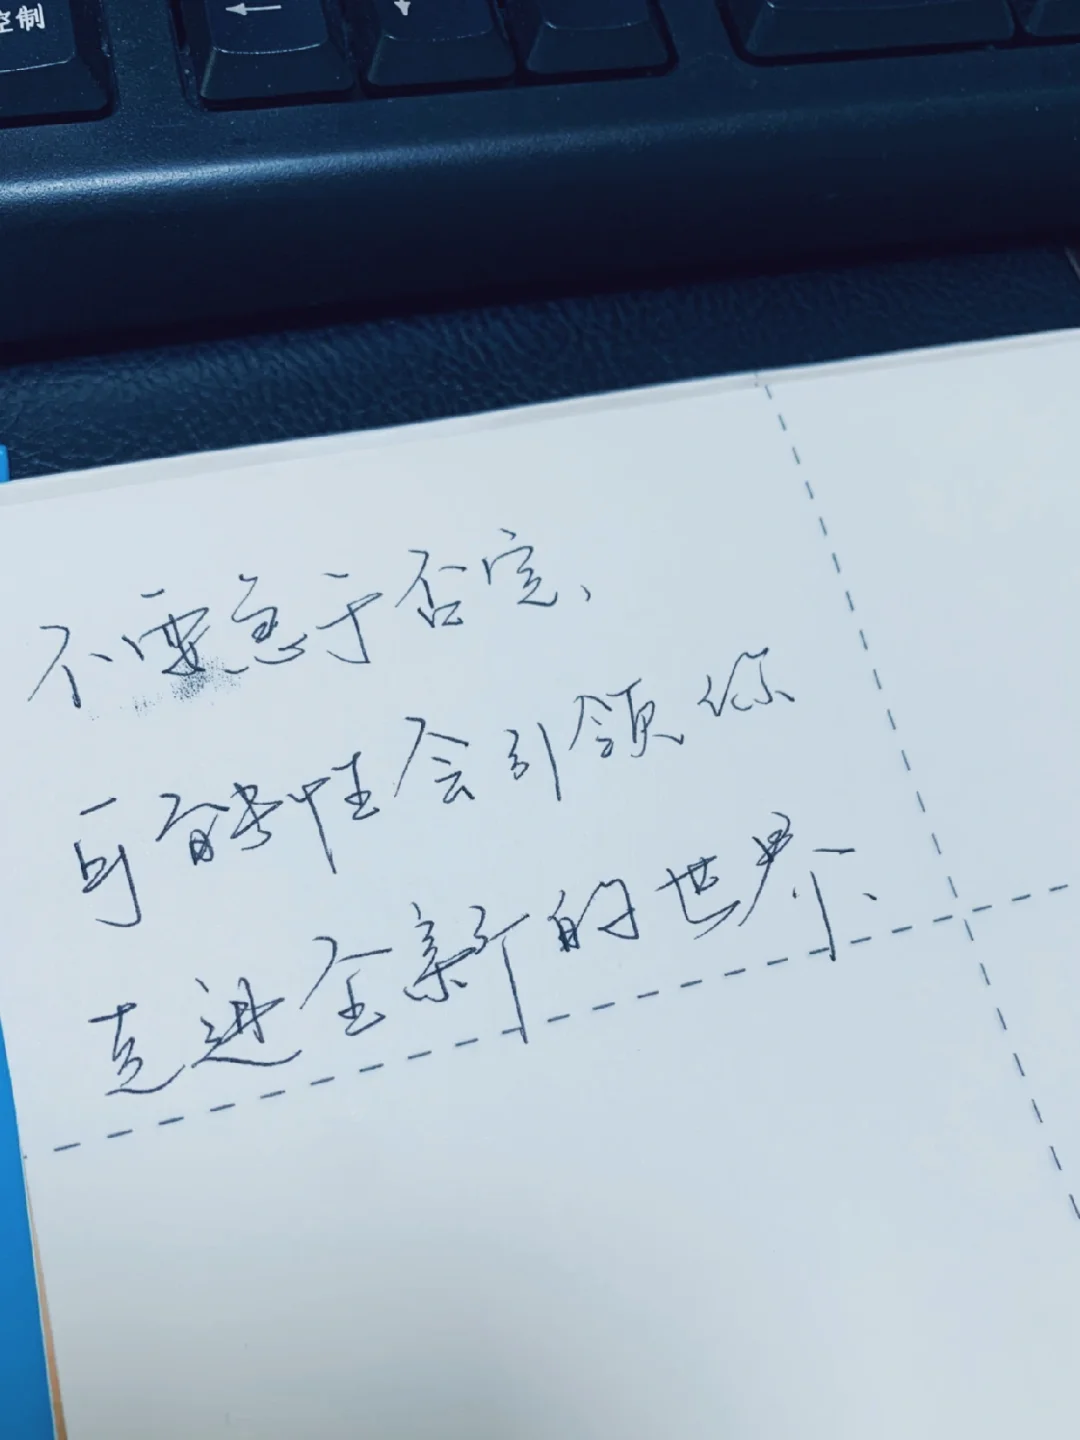 控制
←
不要急于否定、
可能性会引领你
走进全新的世界、